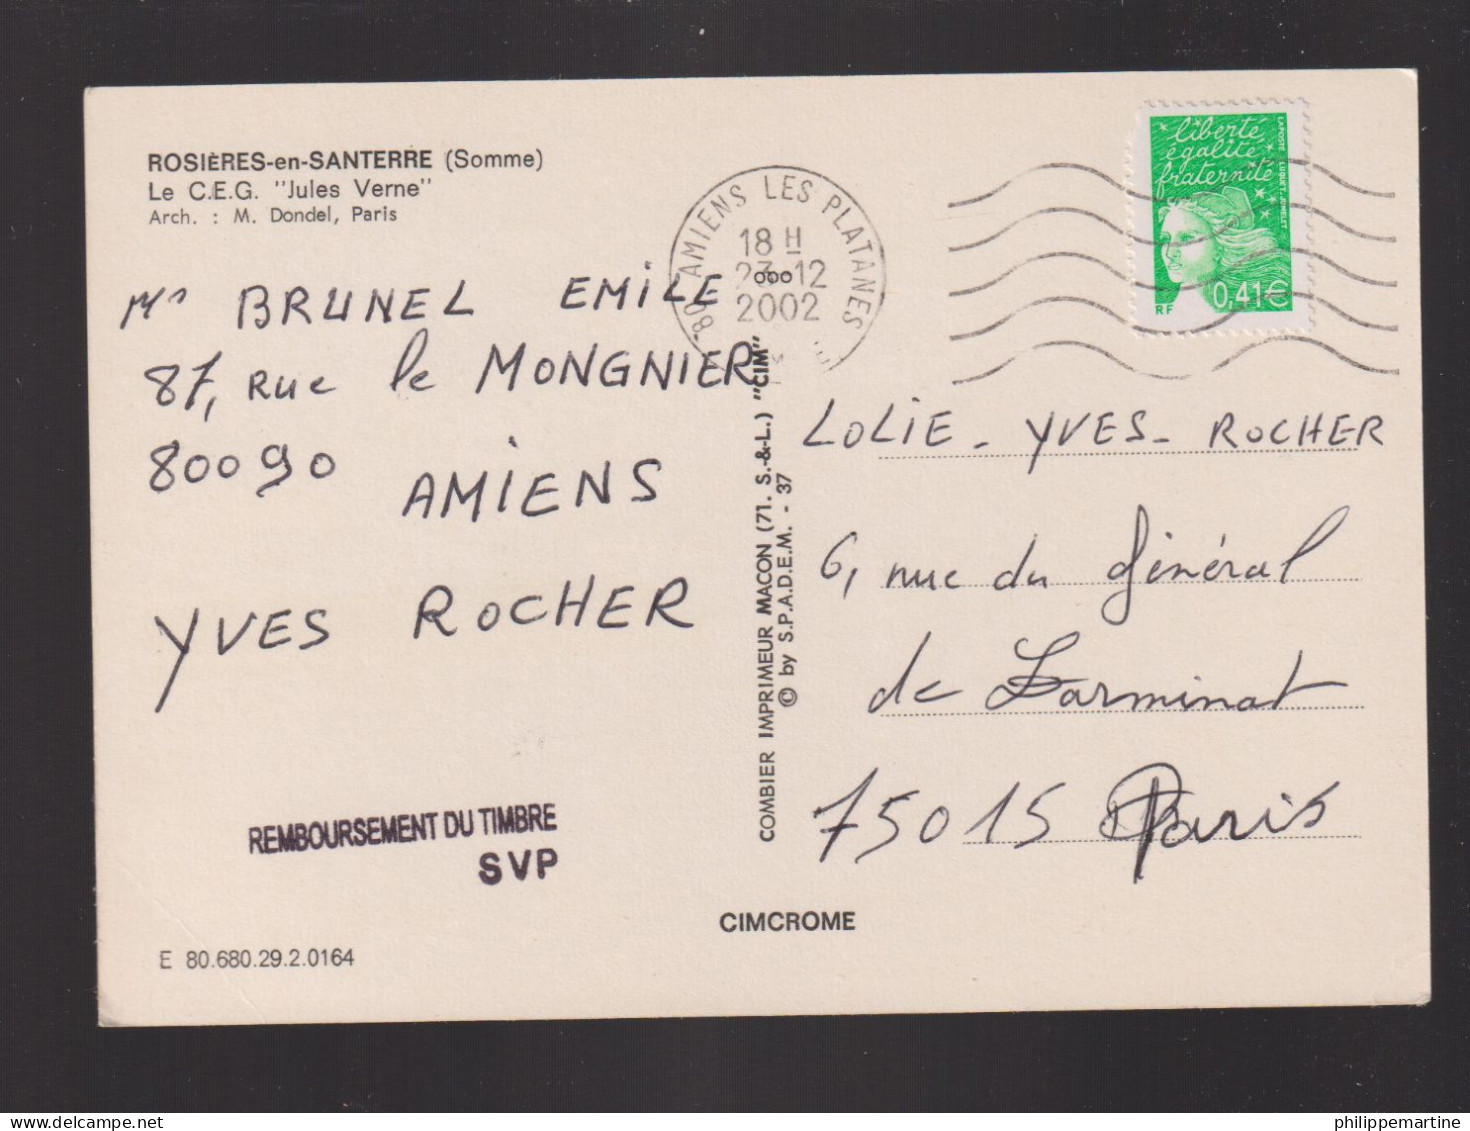 ROSIÈRES-en-SANTERRE (Somme)
Le C.E.G. "Jules Verne"
Arch. : M. Dondel, Paris
Mr BRUNEL EMILE
87, Rue le MONGNIER
80090
AMIENS
YVES ROCHER
REMBOURSEMENT DU TIMBRE
SVP
E 80.680.29.2.0164
COMBIER IMPRIMEUR MACON (71. S.-&-L.) "CIM"
© by S.P.A.D.E.M. - 37
CIMCROME
80 AMIENS LES PLATANES
18 H
23-12
2002
liberté
égalité
fraternité
LAPOSTE LUQUET-JUMELET
RF
0,41€
LOLIE - YVES - ROCHER
6, rue du Général
de Larminat
75015 Paris
philippemartine